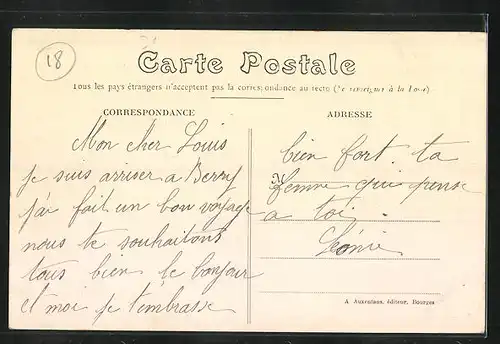 18
Carte Postale
Tous les pays étrangers n'acceptent pas la correspondance au recto (Se renseigner à la Poste).
CORRESPONDANCE
Mon cher Louis
je suis arriser a Berry
j'ai fait un bon voyage
nous te souhaitons
tous bien le bonjour
et moi je t'embrasse
ADRESSE
bien fort. ta
M
femme qui pense
a toi.
Léonie
A Auxenfans, éditeur, Bourges